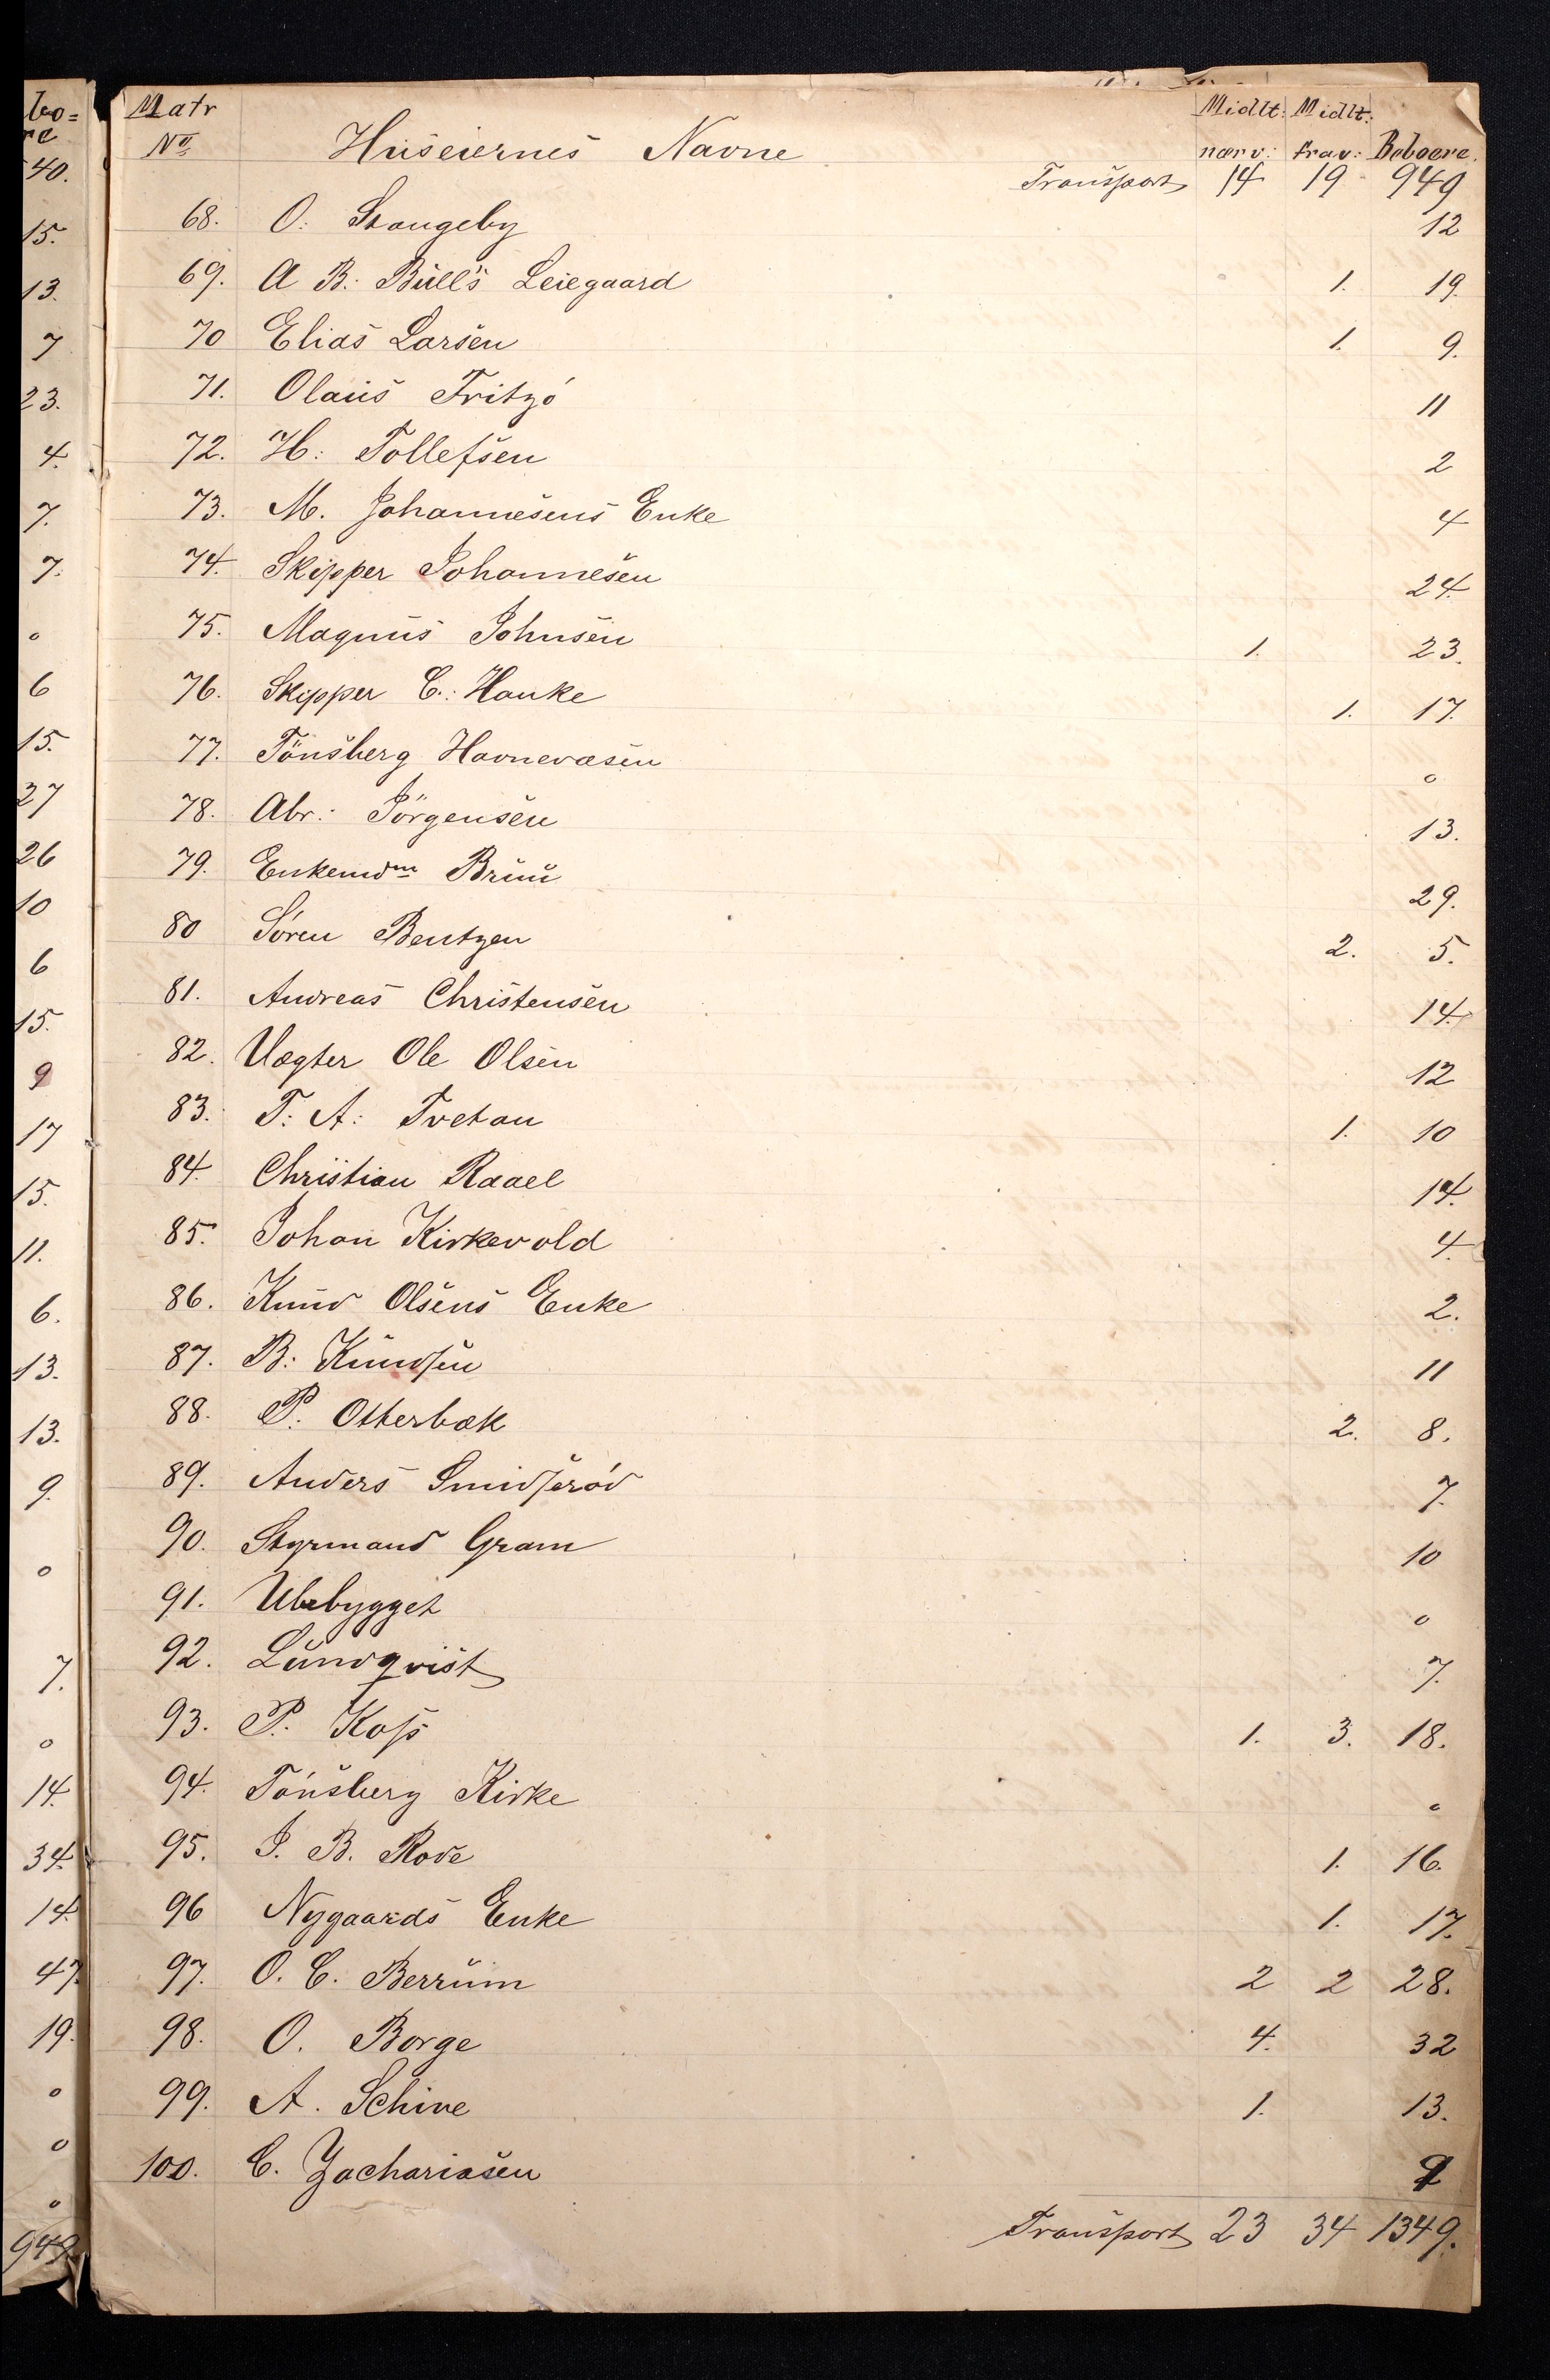 bo=
re
40.
15.
13.
7
23.
4.
7.
7.
0
6
15.
27
26
10
6
15.
9
17
15.
11.
6.
13.
13.
9.
0
7.
0
14.
34.
14.
47.
19.
0
0
0
949.
Matr Midlt: Midlt:
No Huseiernes Navne nærv: frav: Beboere.
Transport 14 19 949
68. O: Stangeby 12
69. A B: Bull's Leiegaard 1. 19.
70 Elias Larsen 1. 9.
71. Olaus Fritzö 11
72. H: Tollefsen 2
73. M. Johannesens Enke 4
74. Skipper Johannesen 24.
75. Magnus Johnsen 1. 23.
76. Skipper C: Hanke 1. 17.
77. Tönsberg Havnevæsen 0
78. Abr: Jörgensen 13.
79. Enkemdm Bruu 29.
80 Sören Bentzen 2. 5.
81. Andreas Christensen 14.
82. Vægter Ole Olsen 12
83. T: A: Tvetan 1. 10
84. Christian Raael 14.
85. Johan Kirkevold 4.
86. Knud Olsens Enke 2.
87. B: Knudsen 11
88. P: Otterbæk 2. 8.
89. Anders Smidsröd 7.
90. Styrmand Gram 10
91. Ubebygget 0
92. Lundqvist 7.
93. P. Koss 1. 3. 18.
94. Tönsberg Kirke 0
95. J. B. Rode 1. 16.
96 Nygaards Enke 1. 17.
97. O. C. Berrum 2 2 28.
98. O. Borge 4. 32
99. A. Schive 1. 13.
100. C. Zachariasen 9
Transport 23 34 1349.